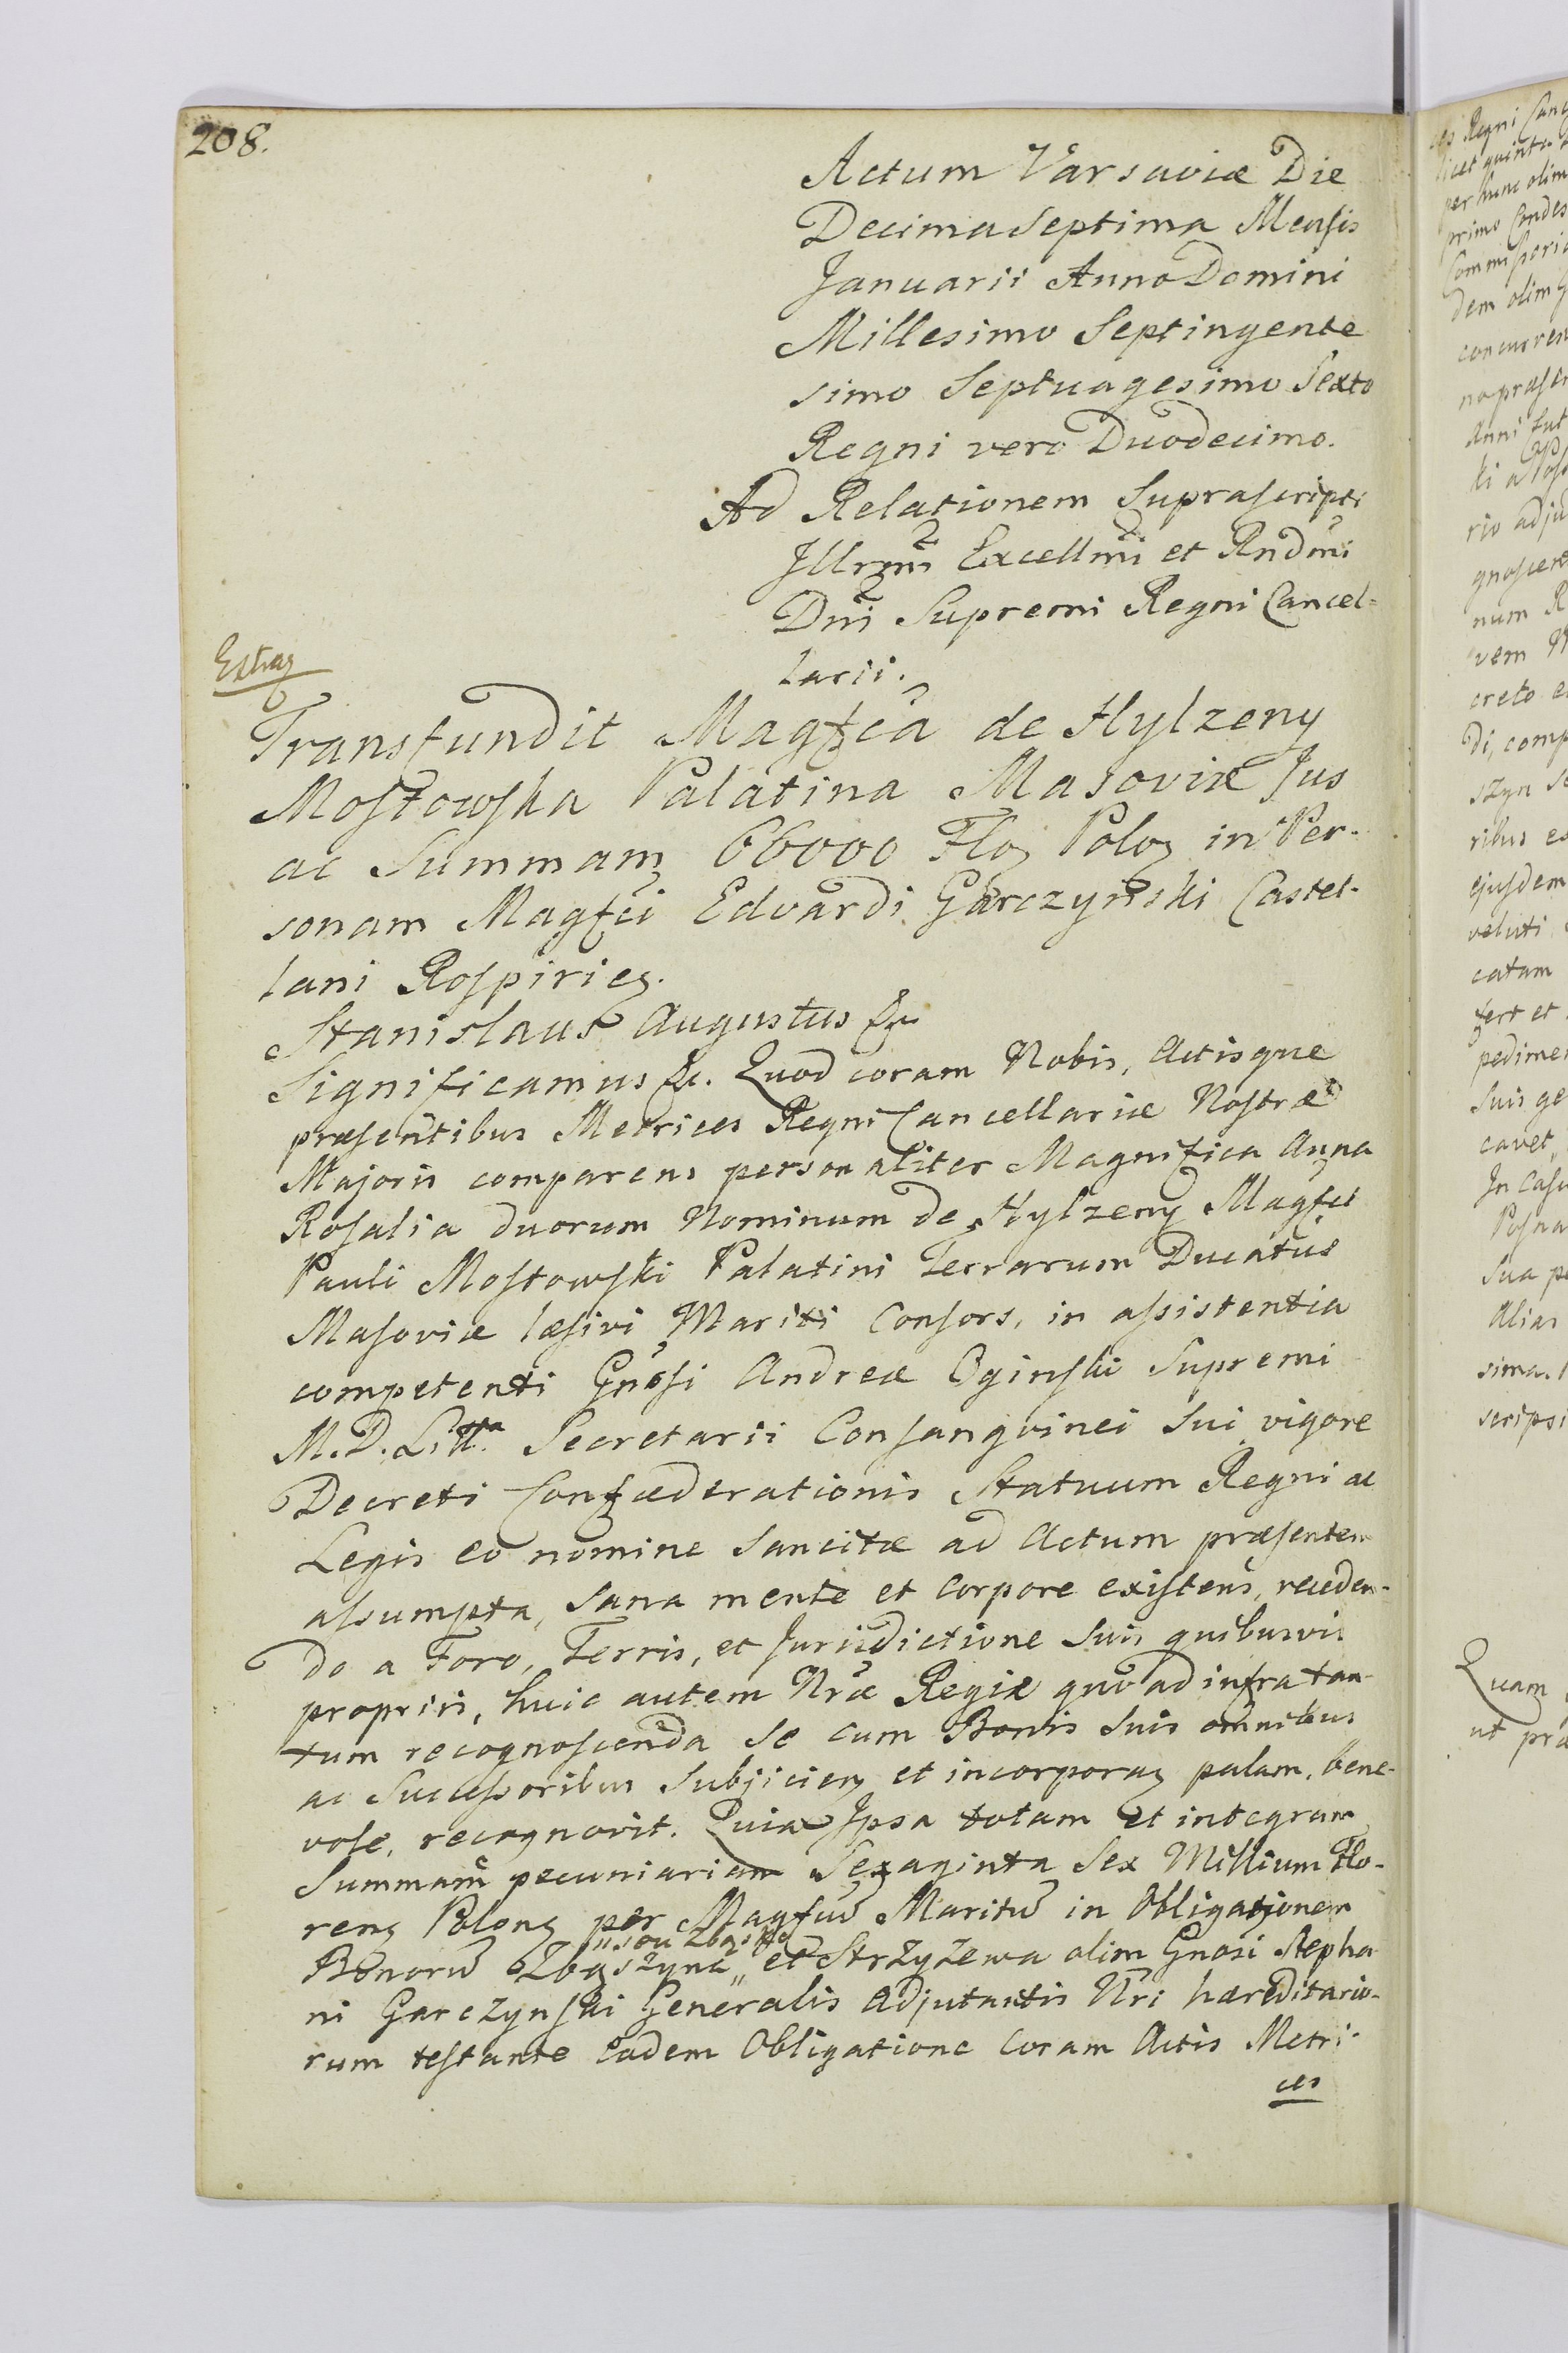 208.
Actum Varsaviæ Die
Decima Septima Mensis
Januarii Anno Domini
Millesimo Septingente
simo Septuagesimo Sexto
Regni vero Duodecimo.
Ad Relationem Suprascripti
Illrmi Excellmi et Rndmi
Dni Supremi Regni Cancel=
larii.
Extrag
Transfundit Magfca de Hylzeny
Mostowska Palatina Masoviæ Jus
ac Summam 66000 Flor Polon in Per-
sonam Magfci Edvardi Garczynski Castel-
lani Rospirien.
Stanislaus Augustus &c
Significamus &c. Quod coram Nobis, Actisque
præsentibus Metrices Regni Cancellariæ Nostræ
Majoris comparens personaliter Magnifica Anna
Rosalia duorum Nominum de Hylzeny Magfci
Pauli Mostowski Palatini Terrarum Ducatus
Masoviæ læsivi Mariti Consors, in assistentia
competenti Gnosi Andreæ Oginski Supremi
M. D. Litt. Secretarii Consangvinei Sui vigore
Decreti Confœderationis Statuum Regni ac
Legis eo nomine Sancitæ ad Actum præsentem
assumpta, Sana mente et Corpore existens, receden-
do a Foro, Terris, et Jurisdictione Suis quibusvis
propriis, huic autem Nræ Regiæ quo ad infra tan
tum recognoscenda Se cum Bonis Suis omnibus
ac Successoribus Subjicien et incorporan palam, bene-
vole, recognovit. Quia Ipsa totam et integram
Summam pecuniariam Sexaginta Sex Millium Flo-
renor Polon per Magfcum Maritum in Obligationem
Bonorum Zbąszyna et Strzyzewa olim Gnosi Stepha
ni Garczynski Generalis Adjutantis Nri hæreditario-
rum testante Eadem Obligatione Coram Actis Metri-
ces